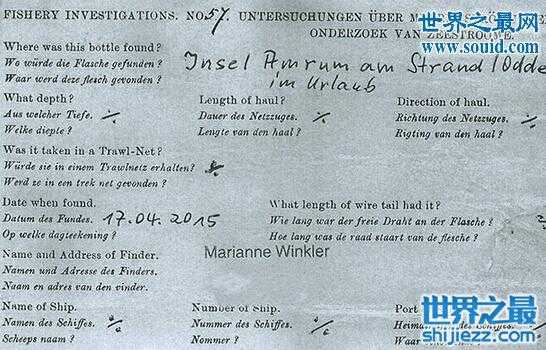 FISHERY INVESTIGATIONS. No. 57. UNTERSUCHUNGEN ÜBER
ONDERZOEK VAN ZEESTROOME.
世界之最
www.souid.com
Where was this bottle found?
Wo würde die Flasche gefunden?
Waar werd deze flesch gevonden?
Insel Amrum am Strand (Odde
im Urlaub
What depth?
Aus welcher Tiefe. ·/·
Welke diepte?
Length of haul?
Dauer des Netzzuges. ·/·
Lengte van den haal?
Direction of haul.
Richtung des Netzzuges. ·/·
Rigting van den haal?
Was it taken in a Trawl-Net?
Würde sie in einem Trawlnetz erhalten? ·/·
Werd ze in een trek net gevonden?
Date when found.
Datum des Fundes. 17.04.2015
Op welke dagteekening?
What length of wire tail had it?
Wie lang war der freie Draht an der Flasche?
Hoe lang was de raad staart van de flesche?
Name and Address of Finder.
Namen und Adresse des Finders.
Naam en adres van den vinder.
Marianne Winkler
Name of Ship.
Namen des Schiffes. ·/·
Scheeps naam?
Number of Ship.
Nummer des Schiffes. ·/·
Nommer?
Port
Heima
Waar
世界之最
shijiezz.com